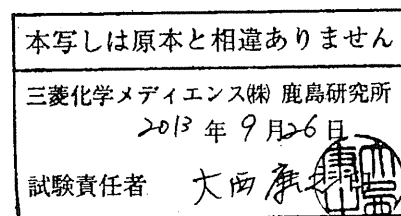 本写しは原本と相違ありません
三菱化学メディエンス㈱ 鹿島研究所
2013 年 9 月26 日
試験責任者 大西 康